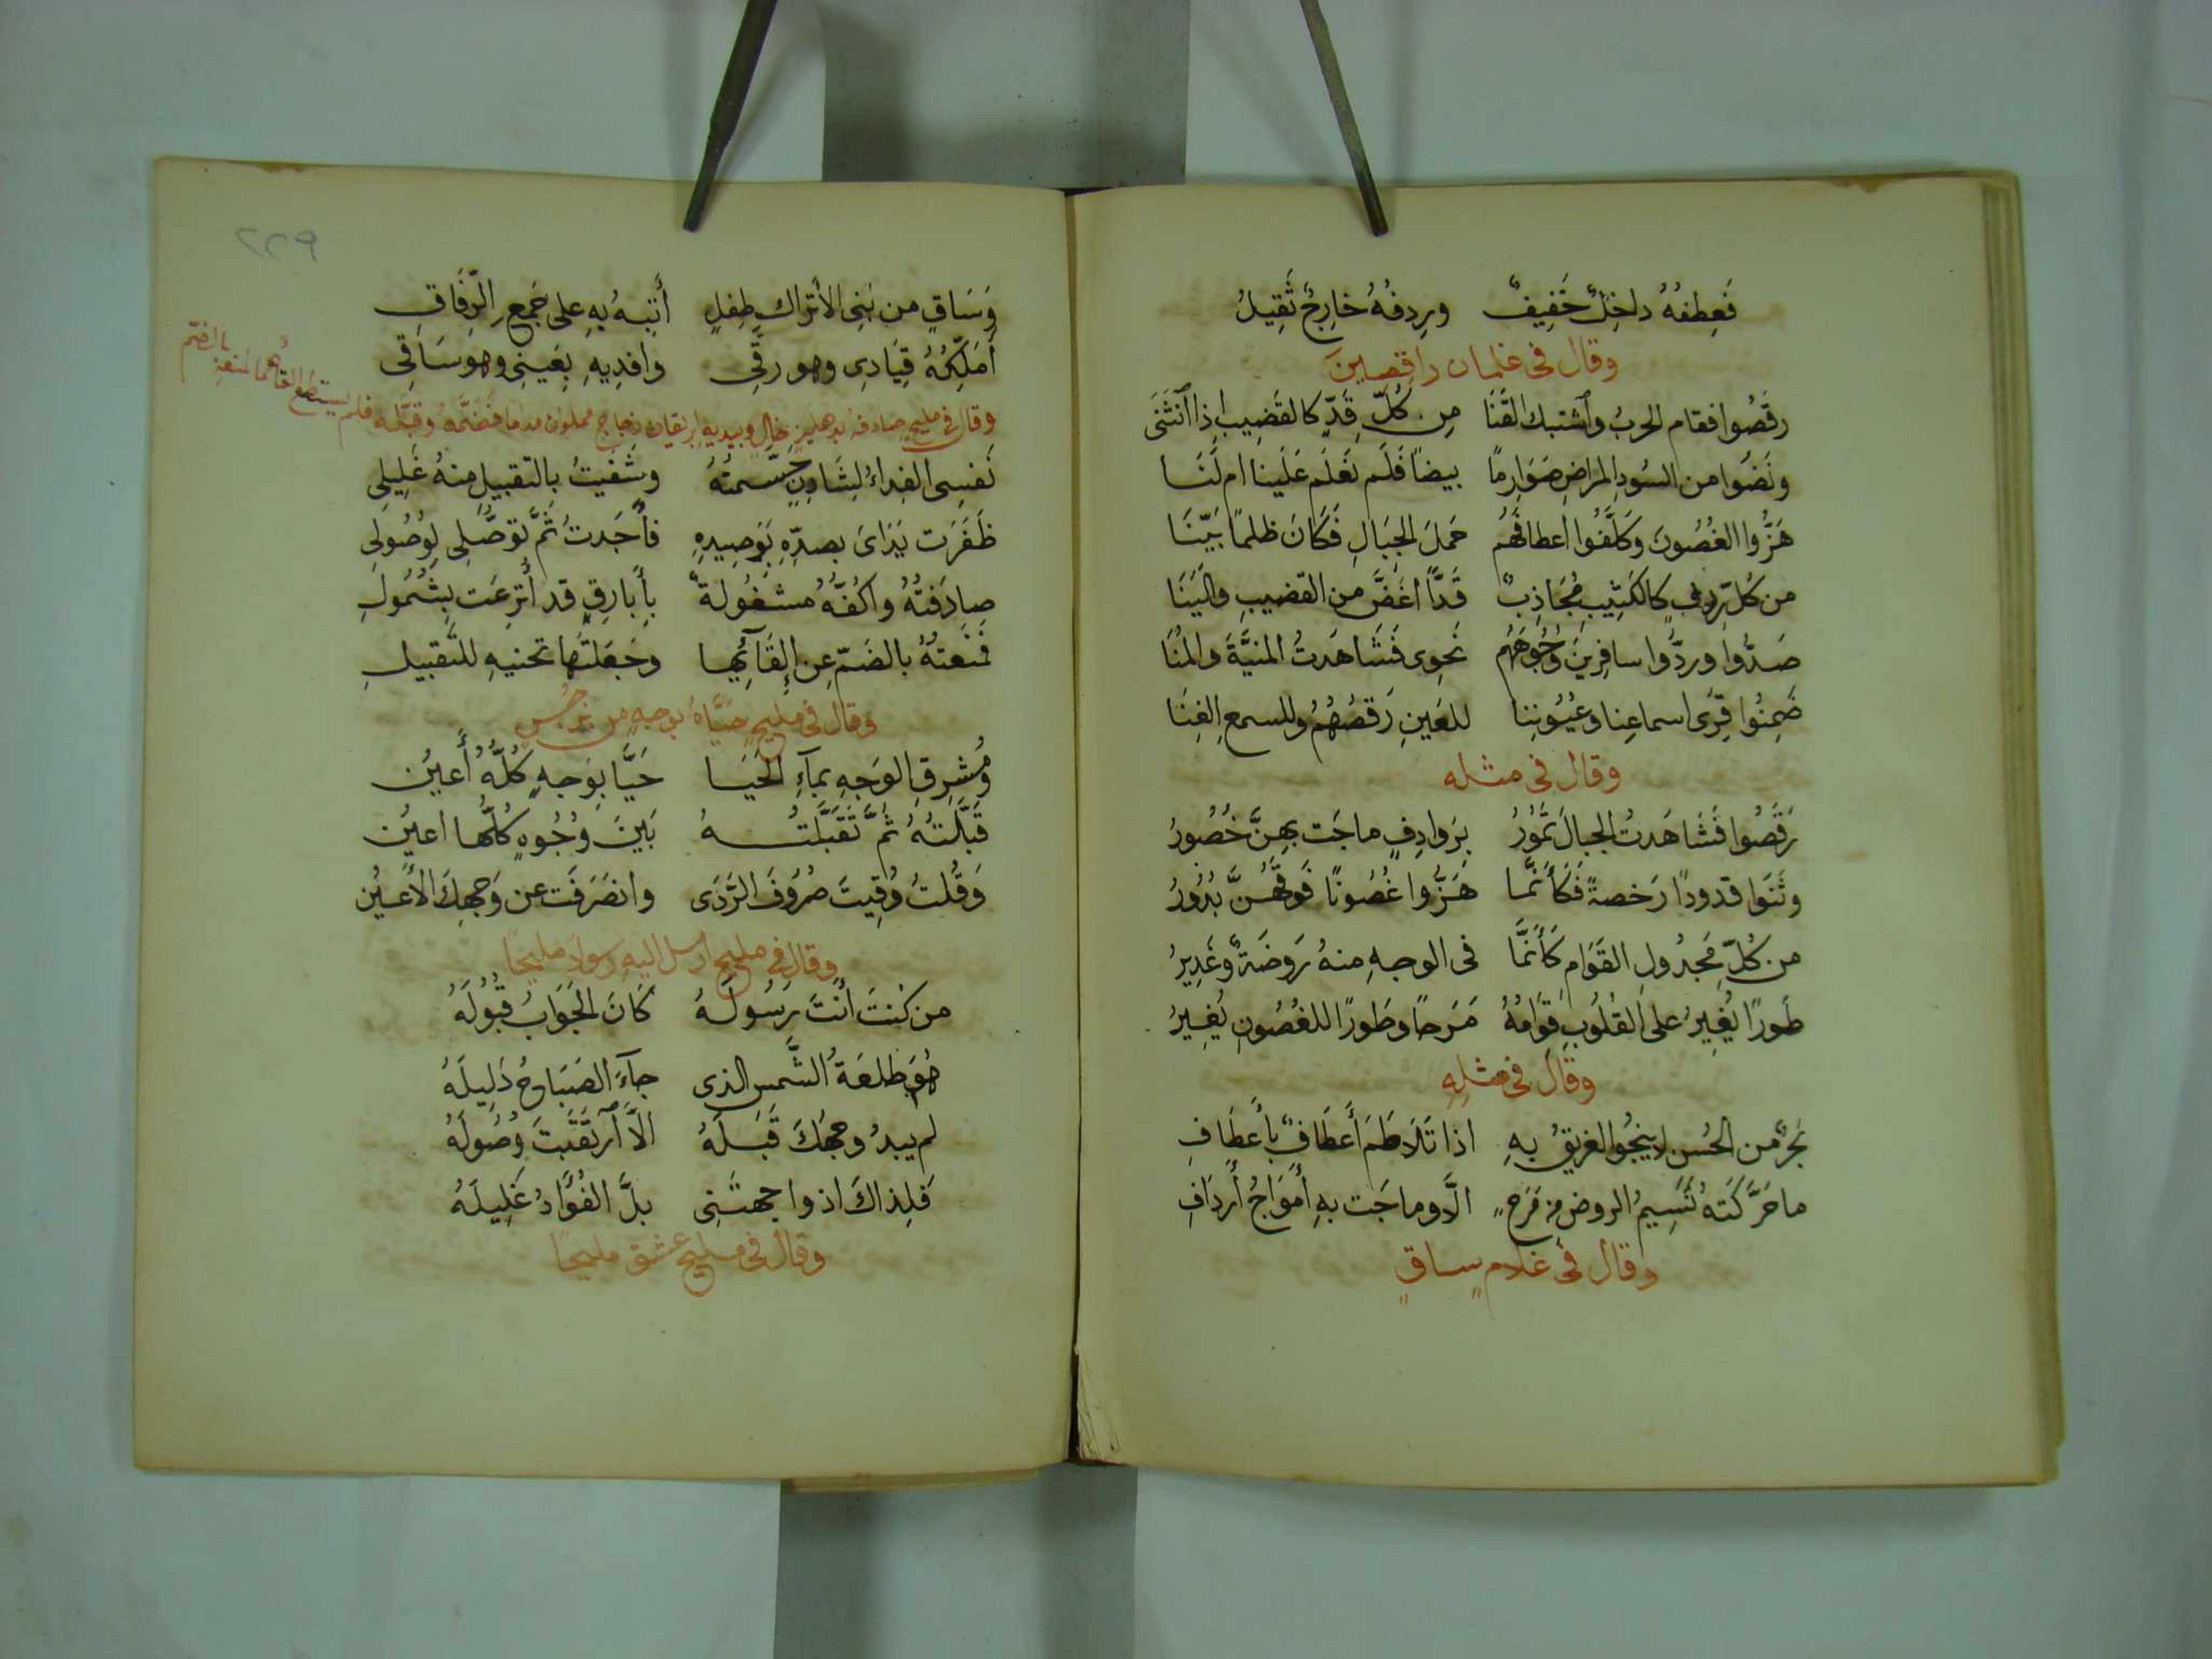 فَعِطفُهُ داخِلٌ خَفِيفٌ وردِفُهُ خارِجٌ ثَقِيلُ
وقال فى غلمان راقصين
رقَصُوا فقام الحربُ وٱشتبك القَنَا مِن كُلّ قَدٍّ كالقَضِيبِ اذا ٱنثَنَى
ونَضَوا من السُودِ المراضِ صَوَارِمًا بيضاً فَلَم نَعلَم عَلَينا ام لَنَا
هَزُّوا الغُصُونَ وَكَلَّفُوا اعطافَهُم حَملَ الجِبَالِ فَكَانَ ظلمًا بَيّنَا
من كُلّ رِدفٍ كالكَثِيبِ مُجَاذِبٌ قَدًّا اغَضَّ من القضيبِ والَينَا
صَدُّوا وردُّوا سافِرِينَ وُجُوهَهُم نَحوِى فَشَاهَدتُ المنيَّةَ والمُنَا
ضَمِنُوا قِرَى اسماعِنا وعُيُونِنا للعَينِ رَقصُهُمُ وللسمعِ الغِنَا
وقال فى مثله
رَقَصُوا فَشَاهَدتُ الجبالَ تَمُورُ بِرَوادِفٍ ماجَت بِهِنَّ خُصُورُ
وثَنَوا قدودًا رَخصةً فَكَأَنَّما هَزُّوا غُصُونًا فَوقَهُنَّ بُدُورُ
من كُلِّ مَجدُولِ القَوَامِ كَأَنَّما فى الوجهِ منهُ رَوضَةٌ وغَدِيرُ
طَورًا يُغِيرُ على القُلُوبِ قوَامُهُ مَرَحاً وطَورًا للغُصُونِ يُغِيرُ
وقال فى مثلِهِ
بَحرٌ من الحُسنِ لا ينجُوا الغريقُ بهِ اذا تَلَاطَمَ أَعطَافٌ بأَعطَافِ
ما حَرَّكَتهُ نَسِيمُ الروضِ من مَرَحٍ الَّا وماجَت بهِ أَموَاجُ أَردَافِ
وقال فى غلام ساقٍ
٢٢٩
وَسَاقٍ من بَنِى الأتراكِ طِفلٍ أَتِيهُ بهِ على جَمعِ الرِّفَاقِ
أُمَلِّكُهُ قِيَادِى وهو رقِّى وافدِيهِ بِعَينِى وهو سَاقِى
وقال فى مليح صادفه بدهليزٍ خالٍ وبيديهِ ابريقان زجاج مملوان مداما فضمَّهُ وقبَّله فلم يستطع القاءهما لمنعهِ بالضمّ
نَفسِى الفِداءُ لِشَادِنٍ جَسَّمتُهُ وشَفَيتُ بالتقبيلِ منهُ غَلِيلِى
ظَفَرَت يَدَاىَ بصدِّهِ بِوَصِيدِهِ فأجَدتُ ثَمَّ توَصُّلِى لِوُصُولِى
صادَفتُهُ واكُفُّهُ مشغُولةٌ بِأَبارِقٍ قد أُترِعَت بِشَمُولِ
فمنَعتُهُ بالضَمّ عن إِلقَآئِها وجَعَلتُها تحنيهِ للتَّقبيلِ
وقال فى مليحٍ حَيَّاهُ بوجهٍ من نَرجسٍ
ومُشرِقِ الوَجهِ بمآءِ الحَيَا حَيَّا بِوَجهٍ كُلُّهُ أَعيُن
قَبَّلتُهُ ثُمَّ تَقَبَّلتُهُ بَينَ وُجُوهٍ كلُّها اعيُن
وَقُلتُ وُقِيتَ صُرُوفَ الرَّدَى وانصَرَفَت عن وَجهِكَ الأَعيُن
وقال فى مليحٍ ارسل اليه رسولاً مليحًا
من كُنتَ أَنتَ رِسُولَهُ كَانَ الجَوَابُ قَبُولَهُ
هُوَ طلعَةُ الشَّمسِ الذى جآءَ الصَبَاحُ دَلِيلَهُ
لم يبدُ وجهُكَ قَبلَهُ الّاَ ٱرتَقَبتَ وُصُولَهُ
فَلِذاكَ اذ واجهتَنِى بلَّ الفُؤَادُ غَلِيلَهُ
وقال فى مليح عشق مليحًا